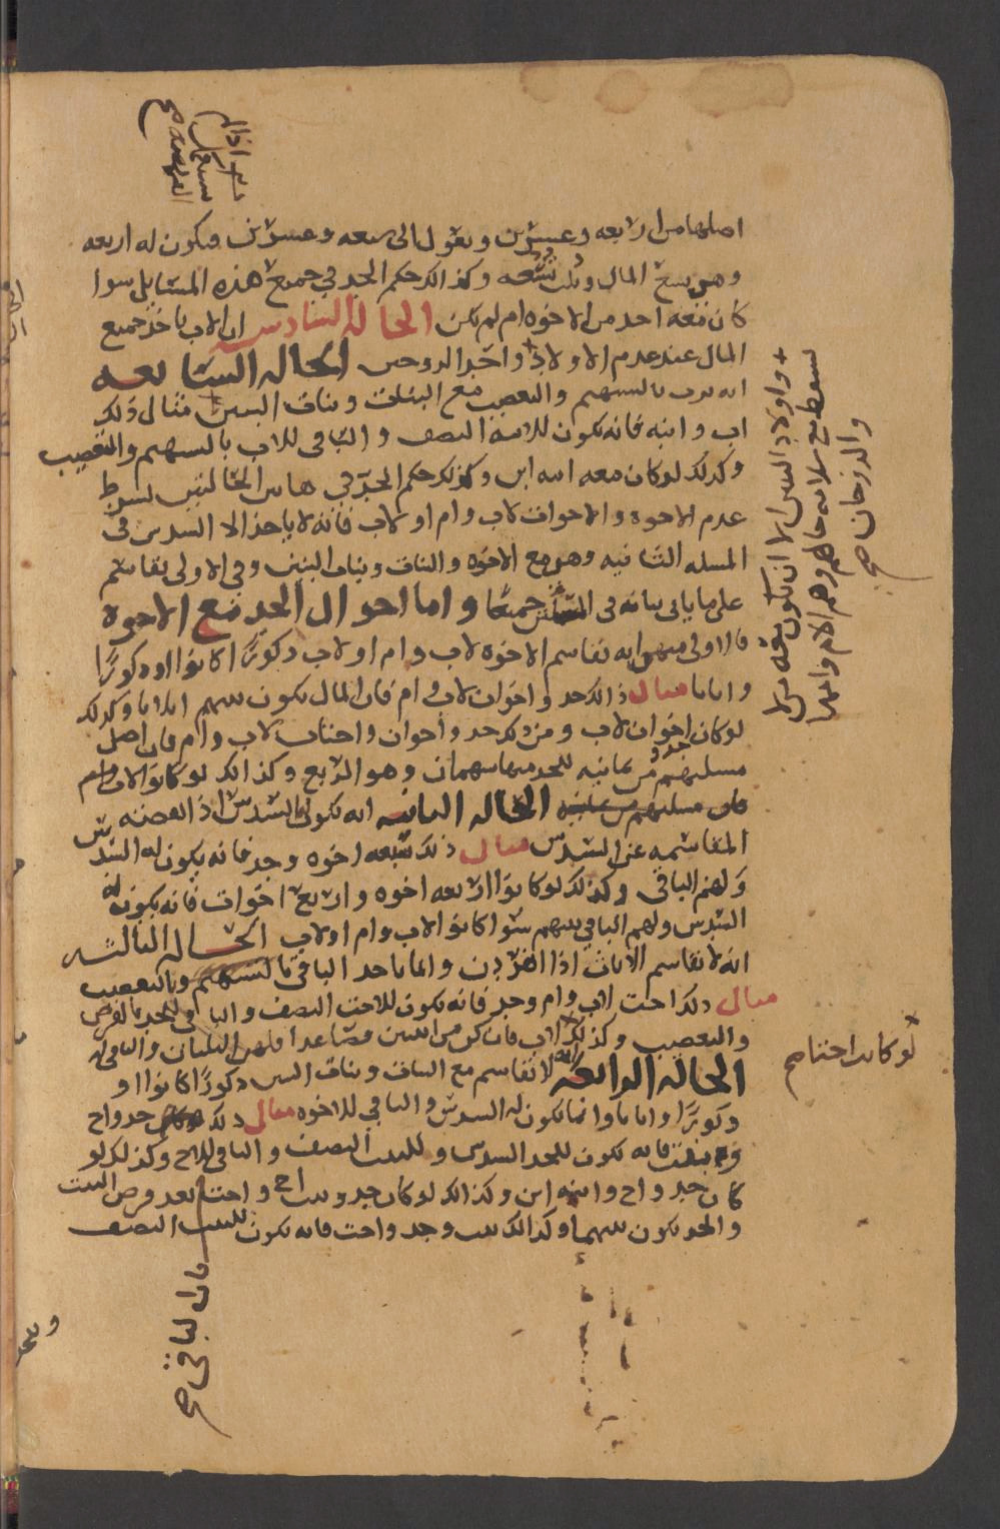 اصلها من اربعه وعشرين وتعول الى سبعه وعشرين فيكون له اربعه
وهي سبع المال وثلث تسعه وكذالك حكم الجد في جميع هذه المسايل سوا
كان معه احد من الاخوه ام لم يكن الحاله السادسه ان الاب ياخذ جميع
المال عند عدم الاولاد واحد الزوجين الحاله السابعه
انه يرث بالسهم والتعصيب مع البنات وبنات البنين مثال ذلك
اب وابنه فانه يكون للابنه النصف والباقي للاب بالسهم والتعصيب
وكذلك لو كان معه ابنه ابن وكذلك حكم الجد في هاتين الحالتين بشرط
عدم الاخوه والاخوات لاب وام او لاب فانه لا ياخذ الا السدس في
المسله الثانيه وهي مع الاخوه والبنات وبنات البنين وفي الاولى يقاسم
على ما ياتي بيانه في جميعا واما احوال الجد مع الاخوه
فالاولى منها انه يقاسم الاخوه لاب وام او لاب ذكورًا كانوا او ذكورًا
واناثا مثال ذالك جد واخوان لاب وام فان المال يكون بينهم اثلاثا وكذلك
لو كان اخوان لاب ومن ذلك جد واخوان واختان لاب وام فان اصل
مسلتهم من ثمانيه للجد منها سهمان وهو الربع وكذالك لو كانوا لاب وام
الحاله الثانيه انه يكون له السدس اذا نقصته
المقاسمه عن السدس مثال ذلك سبعه اخوه وجد فانه يكون له السدس
ولهم الباقي وكذلك لو كانوا اربعه اخوه واربع اخوات فانه يكون له
السدس ولهم الباقي بينهم سوا كانوا لاب وام او لاب الحاله الثالثه
انه لا يقاسم الاناث اذا انفردن وانما ياخذ الباقي بالسهم وبالتعصيب
مثال ذلك اخت لاب وام وجد فانه يكون للاخت النصف والباقي للجد بالفرض
والتعصيب وكذلك لاب فان كن من اثنتين فصاعدا فلهن الثلثان والباقي له
الحاله الرابعه انه لا يقاسم مع البنات وبنات البنين ذكورًا كانوا او
ذكورًا واناثا وانما يكون له السدس والباقي للاخوه مثال ذلك جد واخ
وبنت فانه يكون للجد السدس وللبنت النصف والباقي للاخ وكذلك لو
كان جد واخ وابنه ابن وكذالك لو كان جد وبنت اخ واخت بعد فرض البنت
والجد يكون بينهما وكذالك بنت وجد واخت فانه يكون للبنت النصف
فان الباقي صح
لو كان اختا صح
+ واولاد البنين الا ان يكون معه من لا
يسقط مع سلامه حالهم وهم الام وامها
والزوجان صح